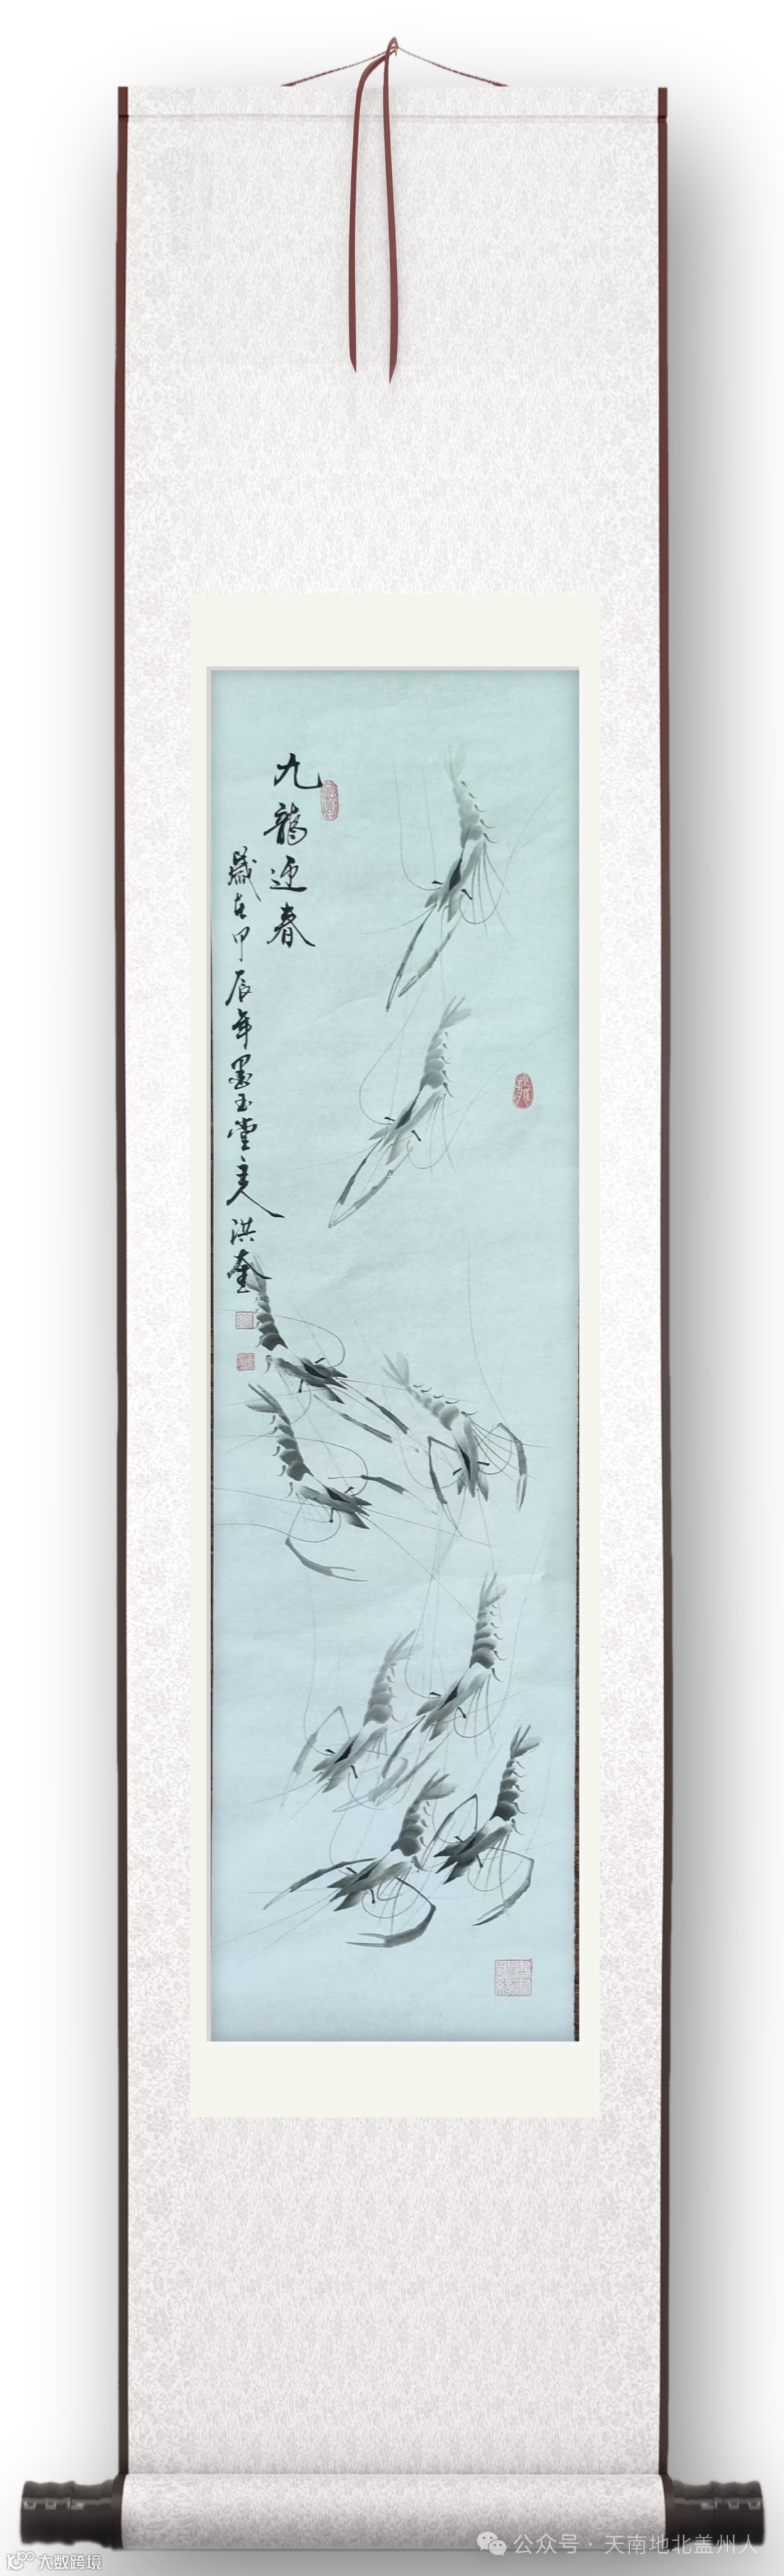 九龍迎春
歲在甲辰年墨玉堂主人洪奎
公众号 · 天南地北盖州人
大数跨境